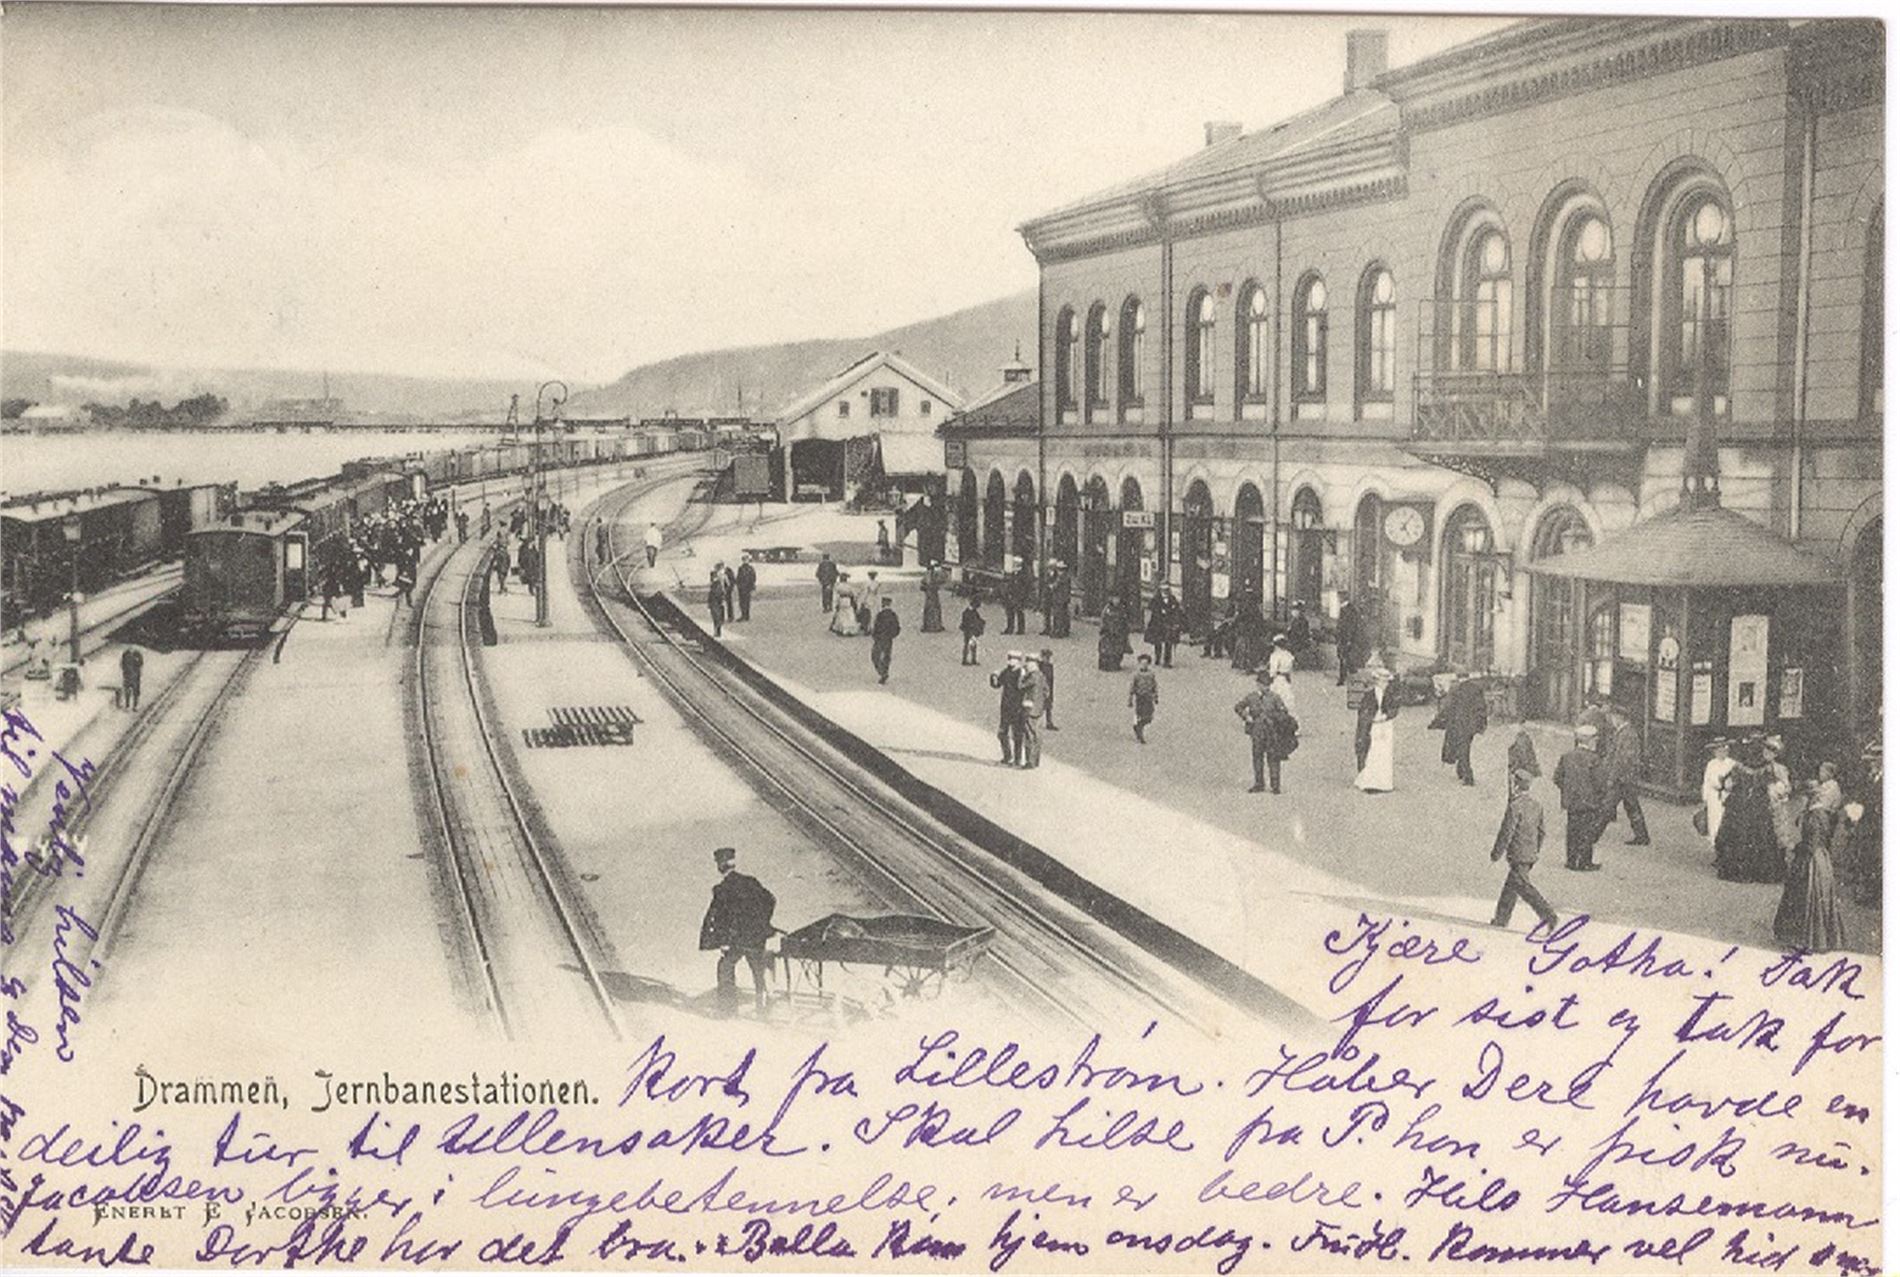 Kjære Gotha! Tak
for sist og tak for
Drammen, Jernbanestationen.
kort fra Lillestrøm. Håber Dere havde en
deilig tur til Ullensaker. Skal hilse fra P. han er frisk nu.
Jacobsen ligger i lungebetennelse, men er bedre. Hils Hansemann
ENERET E JACOBSEN.
tante Dorthe har det bra. Bella kom hjem onsdag. Kommer vel hid
Venlig hilsen
til mama & den